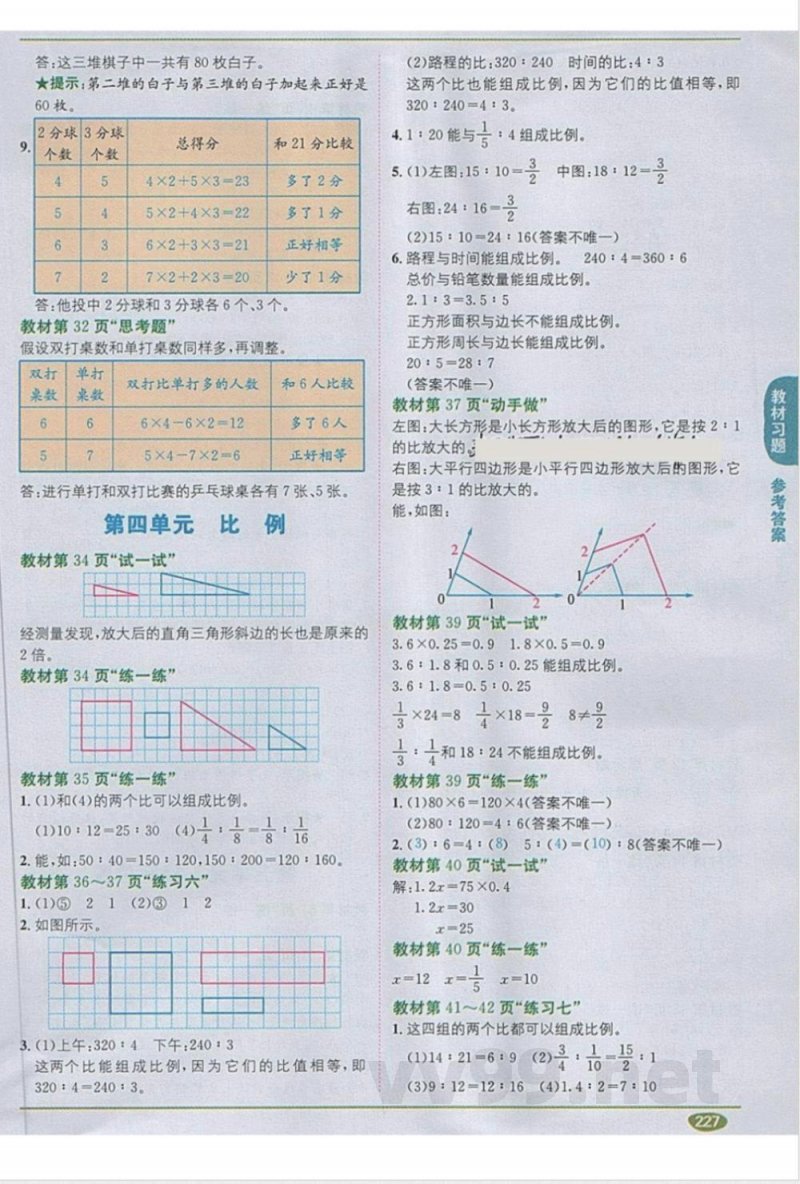 答:这三堆棋子中一共有80枚白子。
★提示:第二堆的白子与第三堆的白子加起来正好是
60枚。
9.
2分球个数 3分球个数 总得分 和21分比较
4 5 4×2+5×3=23 多了2分
5 4 5×2+4×3=22 多了1分
6 3 6×2+3×3=21 正好相等
7 2 7×2+2×3=20 少了1分
答:他投中2分球和3分球各6个、3个。
教材第32页“思考题”
假设双打桌数和单打桌数同样多,再调整。
双打桌数 单打桌数 双打比单打多的人数 和6人比较
6 6 6×4-6×2=12 多了6人
5 7 5×4-7×2=6 正好相等
答:进行单打和双打比赛的乒乓球桌各有7张、5张。
第四单元 比 例
教材第34页“试一试”
经测量发现,放大后的直角三角形斜边的长也是原来的
2倍。
教材第34页“练一练”
教材第35页“练一练”
1.(1)和(4)的两个比可以组成比例。
(1)10:12=25:30 (4)1/4:1/8=1/8:1/16
2.能,如:50:40=150:120,150:200=120:160。
教材第36~37页“练习六”
1.(1)⑤ 2 1 (2)③ 1 2
2.如图所示。
3.(1)上午:320:4 下午:240:3
这两个比能组成比例,因为它们的比值相等,即
320:4=240:3。
(2)路程的比:320:240 时间的比:4:3
这两个比也能组成比例,因为它们的比值相等,即
320:240=4:3。
4.1:20能与1/5:4组成比例。
5.(1)左图:15:10=3/2 中图:18:12=3/2
右图:24:16=3/2
(2)15:10=24:16(答案不唯一)
6.路程与时间能组成比例。 240:4=360:6
总价与铅笔数量能组成比例。
2.1:3=3.5:5
正方形面积与边长不能组成比例。
正方形周长与边长能组成比例。
20:5=28:7
(答案不唯一)
教材第37页“动手做”
左图:大长方形是小长方形放大后的图形,它是按2:1
的比放大的
右图:大平行四边形是小平行四边形放大后的图形,它
是按3:1的比放大的。
能,如图:
2
1
0 1 2
2
1
0 1 2
教材第39页“试一试”
3.6×0.25=0.9 1.8×0.5=0.9
3.6:1.8和0.5:0.25能组成比例。
3.6:1.8=0.5:0.25
1/3×24=8 1/4×18=9/2 8≠9/2
1/3:1/4和18:24不能组成比例。
教材第39页“练一练”
1.(1)80×6=120×4(答案不唯一)
(2)80:120=4:6(答案不唯一)
2.(3):6=4:(8) 5:(4)=(10):8(答案不唯一)
教材第40页“试一试”
解:1.2x=75×0.4
1.2x=30
x=25
教材第40页“练一练”
x=12 x=1/5 x=10
教材第41~42页“练习七”
1.这四组的两个比都可以组成比例。
(1)14:21=6:9 (2)3/4:1/10=15/2:1
(3)9:12=12:16 (4)1.4:2=7:10
教材习题 参考答案
vv99.net
227